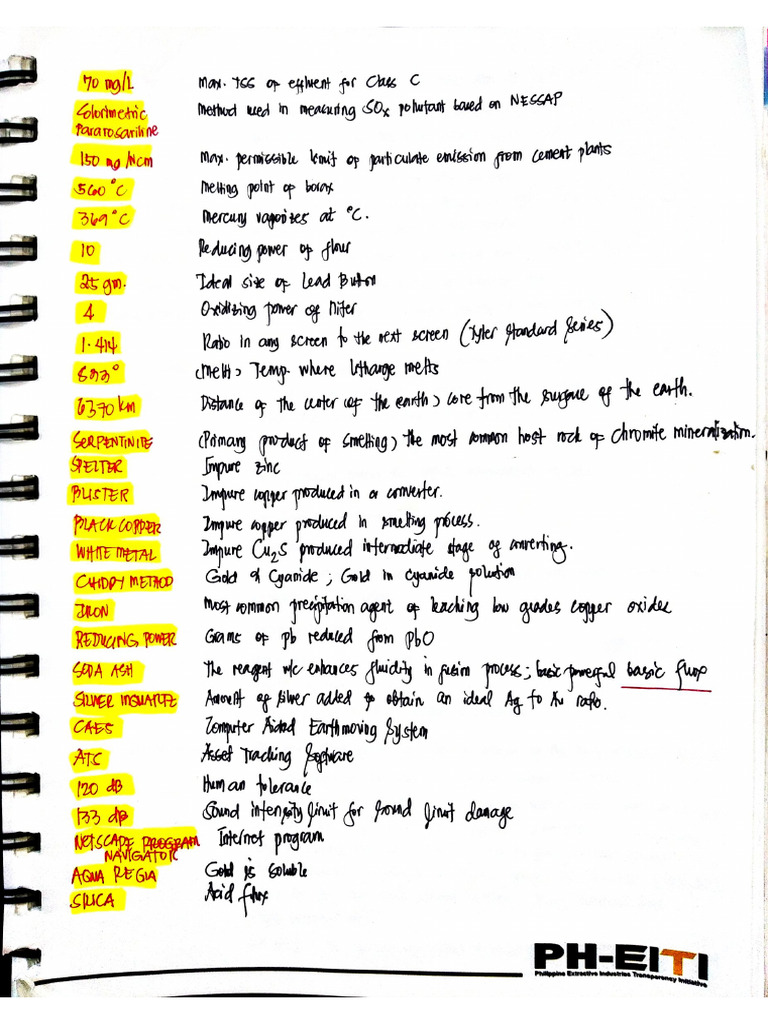 70 mg/L Max. TSS of effluent for Class C
Colorimetric Method used in measuring SOx pollutant based on NESSAP
Pararosaniline
150 mg/Ncm Max. permissible limit of particulate emission from cement plants
560°C Melting point of borax
369°C Mercury vaporizes at °C.
10 Reducing power of flour
25 gm. Ideal size of Lead Button
4 Oxidizing power of Niter
1.414 Ratio in any screen to the next screen (Tyler Standard Series)
883° (Melt) Temp. where litharge melts
6370 km Distance of the center (of the earth) core from the surface of the earth.
SERPENTINITE (Primary product of smelting) the most common host rock of chromite mineralization.
SPELTER Impure zinc
BLISTER Impure copper produced in a converter.
BLACK COPPER Impure copper produced in smelting process.
WHITE METAL Impure Cu2S produced intermediate stage of converting.
CHIDDY METHOD Gold & Cyanide; Gold in cyanide solution
IRON Most common precipitation agent of leaching low grades copper oxides
REDUCING POWER Grams of pb reduced from PbO
SODA ASH The reagent w/c enhances fluidity in fusion process; basic powerful basic flux
SILVER INQUARTZ Amount of silver added to obtain an ideal Ag to Au ratio.
CAES Computer Aided Earthmoving System
ATS Asset Tracking Software
120 dB Human tolerance
133 dB Sound intensity limit for sound limit damage
NETSCAPE PROGRAM Internet program
NAVIGATOR
AQUA REGIA Gold is soluble
SILICA Acid flux
PH-EITI
Philippine Extractive Industries Transparency Initiative